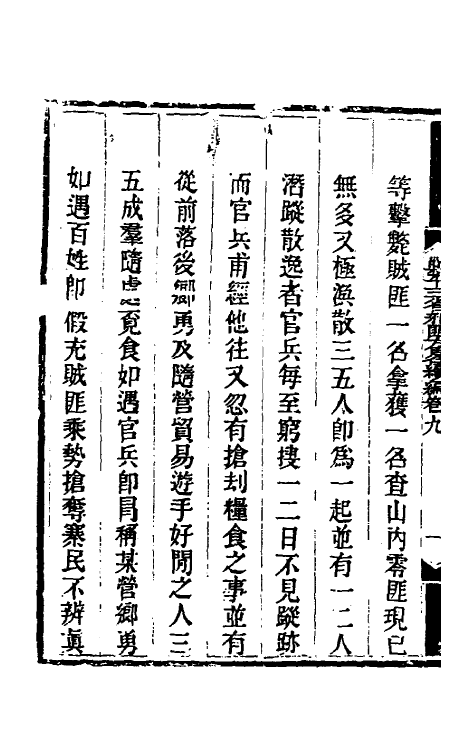 等擊斃賊匪一名拿獲一名查山內零匪現已
無多又極渙散三五人卽爲一起並有一二人
潛蹤散逸者官兵每至窮搜一二日不見蹤跡
而官兵甫經他往又忽有搶刦糧食之事並有
從前落後鄉勇及隨營貿易遊手好閒之人三
五成羣隨處覓食如遇官兵卽冐稱某營鄉勇
如遇百姓卽假充賊匪乘勢搶奪寨民不辨眞
卷九
一